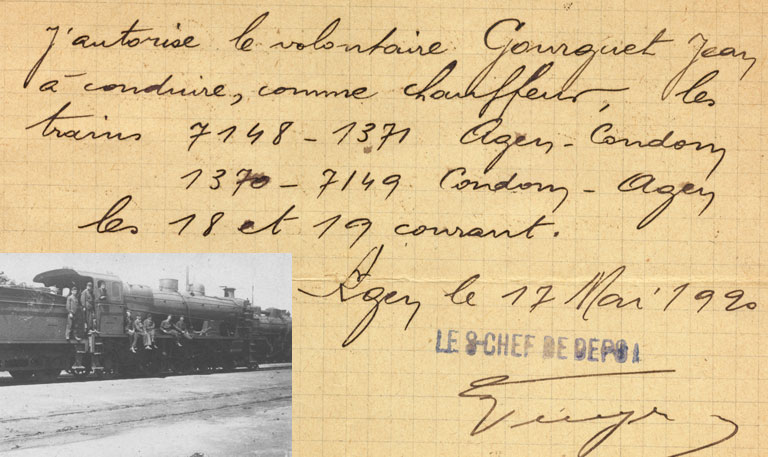 J'autorise le volontaire Gourguet Jean
à conduire, comme chauffeur, les
trains 7148 - 1371 Agen - Condom
1370 - 7149 Condom - Agen
les 18 et 19 courant.
Agen le 17 Mai 1920
LE S-CHEF DE DEPOT